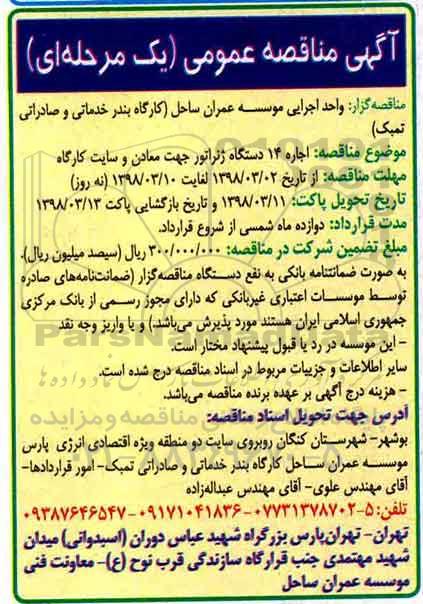 آگهی مناقصه عمومی (یک مرحله‌ای)
مناقصه‌گزار: واحد اجرایی موسسه عمران ساحل (کارگاه بندر خدماتی و صادراتی
تمبک)
موضوع مناقصه: اجاره ۱۴ دستگاه ژنراتور جهت معادن و سایت کارگاه
مهلت مناقصه: از تاریخ ۱۳۹۸/۰۳/۰۲ لغایت ۱۳۹۸/۰۳/۱۰ (نه روز)
تاریخ تحویل پاکت: ۱۳۹۸/۰۳/۱۱ و تاریخ بازگشایی پاکت ۱۳۹۸/۰۳/۱۳
مدت قرارداد: دوازده ماه شمسی از شروع قرارداد.
مبلغ تضمین شرکت در مناقصه: ۳۰۰/۰۰۰/۰۰۰ ریال (سیصد میلیون ریال).
به صورت ضمانتنامه بانکی به نفع دستگاه مناقصه‌گزار (ضمانت‌نامه‌های صادره
توسط موسسات اعتباری غیربانکی که دارای مجوز رسمی از بانک مرکزی
جمهوری اسلامی ایران هستند مورد پذیرش می‌باشد.) و یا واریز وجه نقد
- این موسسه در رد یا قبول پیشنهاد مختار است.
سایر اطلاعات و جزییات مربوط در اسناد مناقصه درج شده است.
- هزینه درج آگهی بر عهده برنده مناقصه می‌باشد.
آدرس جهت تحویل اسناد مناقصه:
بوشهر- شهرستان کنگان روبروی سایت دو منطقه ویژه اقتصادی انرژی پارس
موسسه عمران ساحل کارگاه بندر خدماتی و صادراتی تمبک- امور قراردادها-
آقای مهندس علوی- آقای مهندس عبداله‌زاده
تلفن: ۵-۰۷۷۳۱۳۷۸۷۰۲-۰۹۱۷۱۰۴۱۸۳۶-۰۹۳۸۷۶۴۶۵۴۷
تهران- تهران‌پارس بزرگراه شهید عباس دوران (اسبدوانی) میدان
شهید مهتمدی جنب قرارگاه سازندگی قرب نوح (ع)- معاونت فنی
موسسه عمران ساحل